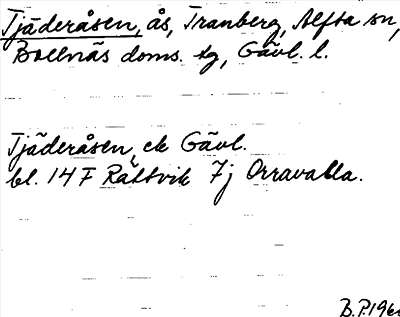 Tjäderåsen, ås, Tranberg, Alfta sn,
Bollnäs doms. tg, Gävl. l.
Tjäderåsen, ek Gävl.
bl. 14 F Rättvik 7j Orravalla.
B.P.196